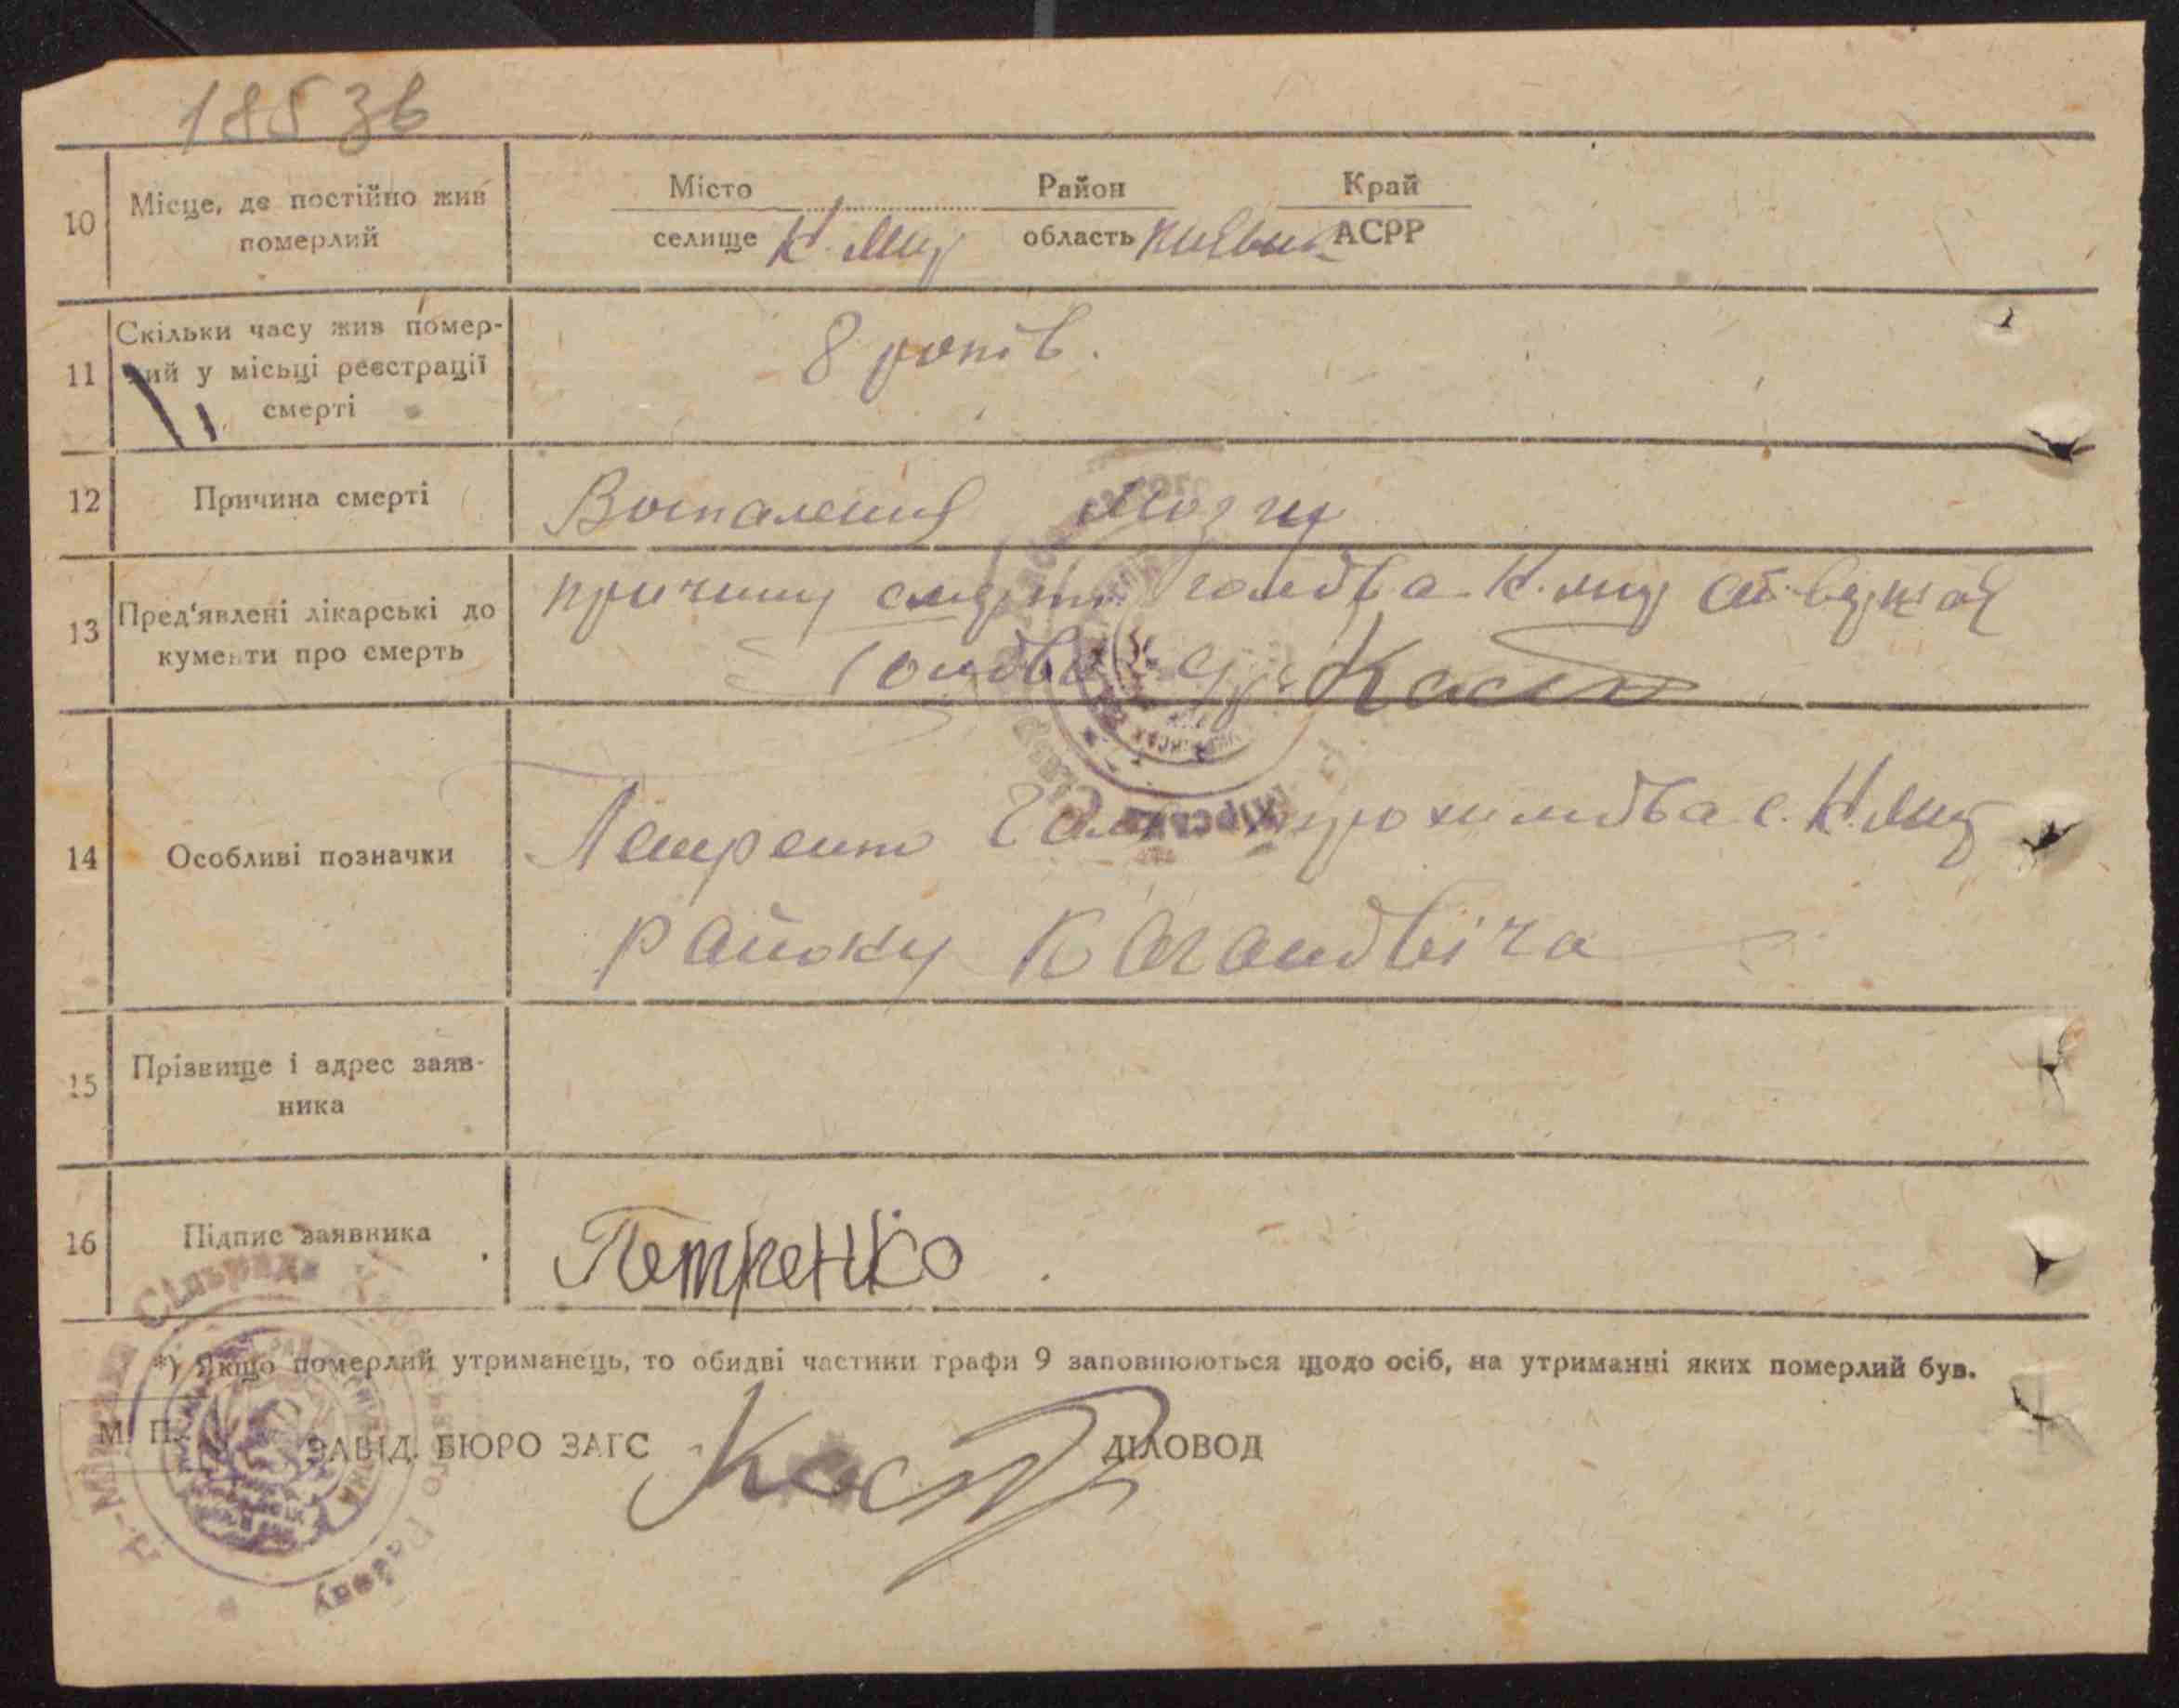 18536
10 Місце, де постійно жив померлий
Місто селище К. Миз Район область Київськ Край АСРР
11 Скільки часу жив помер-
ий у місьці реєстрації
смерті
8 років.
12 Причина смерті
Воспаления Мозгу
13 Пред'явлені лікарські до
кументи про смерть
причину смерти голова К.
голова с/р Кост
14 Особливі позначки
Петренко с. К.
району Кагановіча
15 Прізвище і адрес заяв-
ника
16 Підпис заявника
Петренко
*) Якщо померлий утриманець, то обидві частини графи 9 заповнюються щодо осіб, на утриманні яких померлий був.
М. П. ЗАВІД. БЮРО ЗАГС ДІЛОВОД
Сільрада
Району